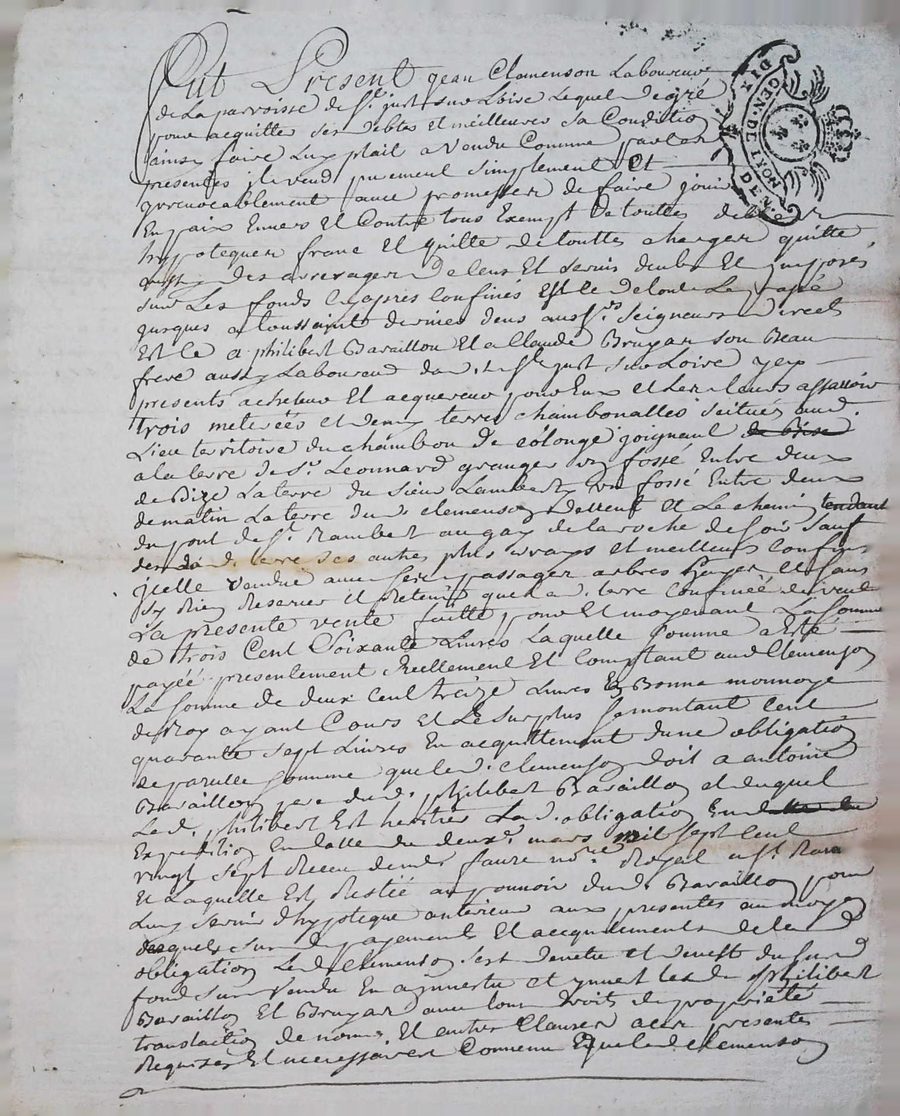 Fut Present jean Clemenson Laboureur
de La parroisse de St. just sur Loire Lequel de gré
pour acquitter ses debtes Et meilleurer sa Condition
ainsy faire Luy plait a vendu Comme par les
presentes il vend purement simplement Et
yrrevocablement avec promesses de faire jouir
En paix Envers Et Contre tous Exempt De touttes debtes
hypoteques franc Et quitte de touttes charges quitte
des arrerages De Cens Et servis deubs Et imposés
sur Les fonds Cy apres Confinés de tout Le passé
jusques a toussaint dernier deus aux srs. Seigneurs directs
Est Le a philibert Bavaillon Et a Claude Bruyas son Beau
frere aussy Laboureur de St. just sur Loire yey
presents achepteur Et acquereur pour Eux et Les Leurs assavoir
trois meterées et demy terre chambonalles scituée aud.
Lieu territoire du chambon de Colonge joignant de Bise
a la terre de Sr. Leonnard granger un fossé Entre deux
de Bize La terre du sieur Lambert un fossé Entre deux
de matin La terre dud. Clemenson de vent Et Le chemin tendant
du pont de St. Rambert au gay de la roche de soir Sauf
de lad. terre ses autres plus vrays et meilleurs Confins
jcelle vendue avec ses passages arbres hayes Et sans
sy Rien Reserver n'y Retenir que La terre Confinée de vend
La presente vente faitte pour et moyenant La somme
de trois Cent Soixante Livres Laquelle somme a Esté
payée presentement Réellement Et Comptant aud. Clemenson
La somme de deux Cent treize Livres En Bonne monnoye
de Roy ayant Cours et Le Surplus se montant Cent
quarante sept Livres En acquittement d'une obligation
de pareille somme que led. Clemenson doit a antoine
Bavaillon pere dud. philibert Bavaillon et duquel
Led. philibert Est heritier Lad. obligation En
Expedition En datte du deuxe. mars mil sept Cent
vingt sept Receu de me. faure nore. Royal a St. Ram
Et Laquelle Est Restée au pouvoir dud. Bavaillon pour
Luy servir d'hypoteque anterieur aux presentes au moyen
desquels susd. payements Et acquittements de lad.
obligation Led. Clemenson s'est demetu et devest du susd.
fond sus vendu En a jnvestu et jnvest Lesd. philibert
Bavaillon Et Bruyas avec tous Droits de proprieté
translaction de noms Et autres Clauses a ces presentes
Requises Et necessaires Convenu Que Led. Clemenson
DIX DEN.
GEN. DE